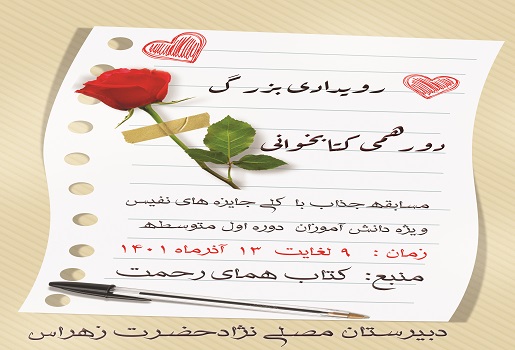 رویدادی بزرگ
دورهمی کتابخوانی
مسابقه جذاب با کلی جایزه های نفیس
ویژه دانش آموزان دوره اول متوسطه
زمان : ۹ لغایت ۱۳ آذرماه ۱۴۰۱
منبع: کتاب همای رحمت
دبیرستان مصلی نژاد حضرت زهراس